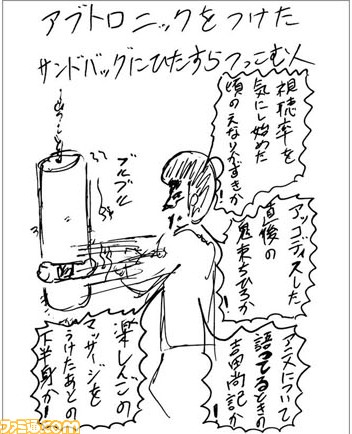 アブトロニックをつけた
サンドバッグにひたすらつっこむ人
視聴率を
気にし始めた
頃のえなりかずきか!
ブルブル
アッコにディスした
直後の
鬼束ちひろか!
アニメについて
語ってるときの
吉田尚記か!
楽しんごの
マッサージを
うけたあとの
下半身か!
ファミ通.com